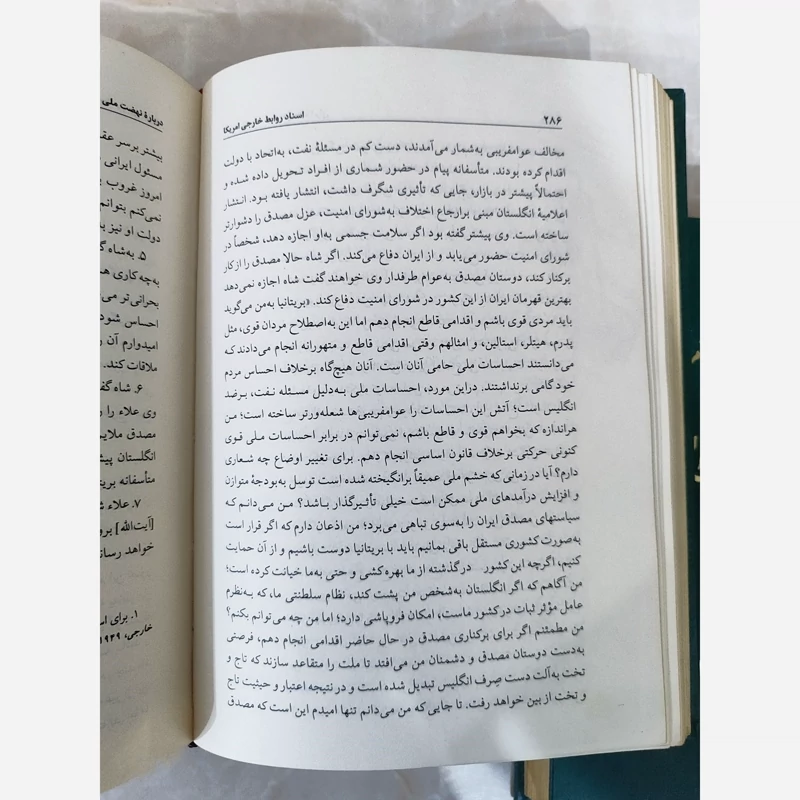 ۲۸۶
اسناد روابط خارجی امریکا
مخالف عوامفریبی به‌شمار می‌آمدند، دست کم در مسئلهٔ نفت، به‌اتحاد با دولت
اقدام کرده بودند. متأسفانه پیام در حضور شماری از افراد تحویل داده شده و
احتمالاً پیشتر در بازار، جایی که تأثیری شگرف داشت، انتشار یافته بود. انتشار
اعلامیهٔ انگلستان مبنی برارجاع اختلاف به‌شورای امنیت، عزل مصدق را دشوارتر
ساخته است. وی پیشتر گفته بود اگر سلامت جسمی به‌او اجازه دهد، شخصاً در
شورای امنیت حضور می‌یابد و از ایران دفاع می‌کند. اگر شاه حالا مصدق را از کار
برکنار کند، دوستان مصدق به‌عوام طرفدار وی خواهند گفت شاه اجازه نمی‌دهد
بهترین قهرمان ایران از این کشور در شورای امنیت دفاع کند. «بریتانیا به‌من می‌گوید
باید مردی قوی باشم و اقدامی قاطع انجام دهم اما این به‌اصطلاح مردان قوی، مثل
پدرم، هیتلر، استالین، و امثالهم وقتی اقدامی قاطع و متهورانه انجام می‌دادند که
می‌دانستند احساسات ملی حامی آنان است. آنان هیچ‌گاه برخلاف احساس مردم
خود گامی برنداشتند. دراین مورد، احساسات ملی به‌دلیل مسئله نفت، برضد
انگلیس است؛ آتش این احساسات را عوامفریبی‌ها شعله‌ورتر ساخته است؛ من
هراندازه که بخواهم قوی و قاطع باشم، نمی‌توانم در برابر احساسات ملی قوی
کنونی حرکتی برخلاف قانون اساسی انجام دهم. برای تغییر اوضاع چه شعاری
دارم؟ آیا در زمانی که خشم ملی عمیقاً برانگیخته شده است توسل به‌بودجهٔ متوازن
و افزایش درآمدهای ملی ممکن است خیلی تأثیرگذار باشد؟ من می‌دانم که
سیاستهای مصدق ایران را به‌سوی تباهی می‌برد؛ من اذعان دارم که اگر قرار است
به‌صورت کشوری مستقل باقی بمانیم باید با بریتانیا دوست باشیم و از آن حمایت
کنیم، اگرچه این کشور درگذشته از ما بهره‌کشی و حتی به‌ما خیانت کرده است؛
من آگاهم که اگر انگلستان به‌شخص من پشت کند، نظام سلطنتی ما، که به‌نظرم
عامل مؤثر ثبات در کشور ماست، امکان فروپاشی دارد؛ اما من چه می‌توانم بکنم؟
من مطمئنم اگر برای برکناری مصدق در حال حاضر اقدامی انجام دهم، فرصتی
به‌دست دوستان مصدق و دشمنان من می‌افتد تا ملت را متقاعد سازند که تاج و
تخت به‌آلت دست صِرف انگلیس تبدیل شده است و در نتیجه اعتبار و حیثیت تاج
و تخت از بین خواهد رفت. تا جایی که من می‌دانم تنها امیدم این است که مصدق
دربارهٔ نهضت ملی
بیشتر برسر
مسئول ایرانی
امروز غروب
نمی‌کنم بتوانم
دولت او نیز
۵. به‌شاه
به‌چه کاری
بحرانی‌تر
احساس شود
امیدوارم آن
ملاقات کند.
۶. شاه
وی علاء را
مصدق
انگلستان
متأسفانه
۷. علاء
[آیت‌الله]
خواهد
۱. برای
خارجی، ۱۹۴۹